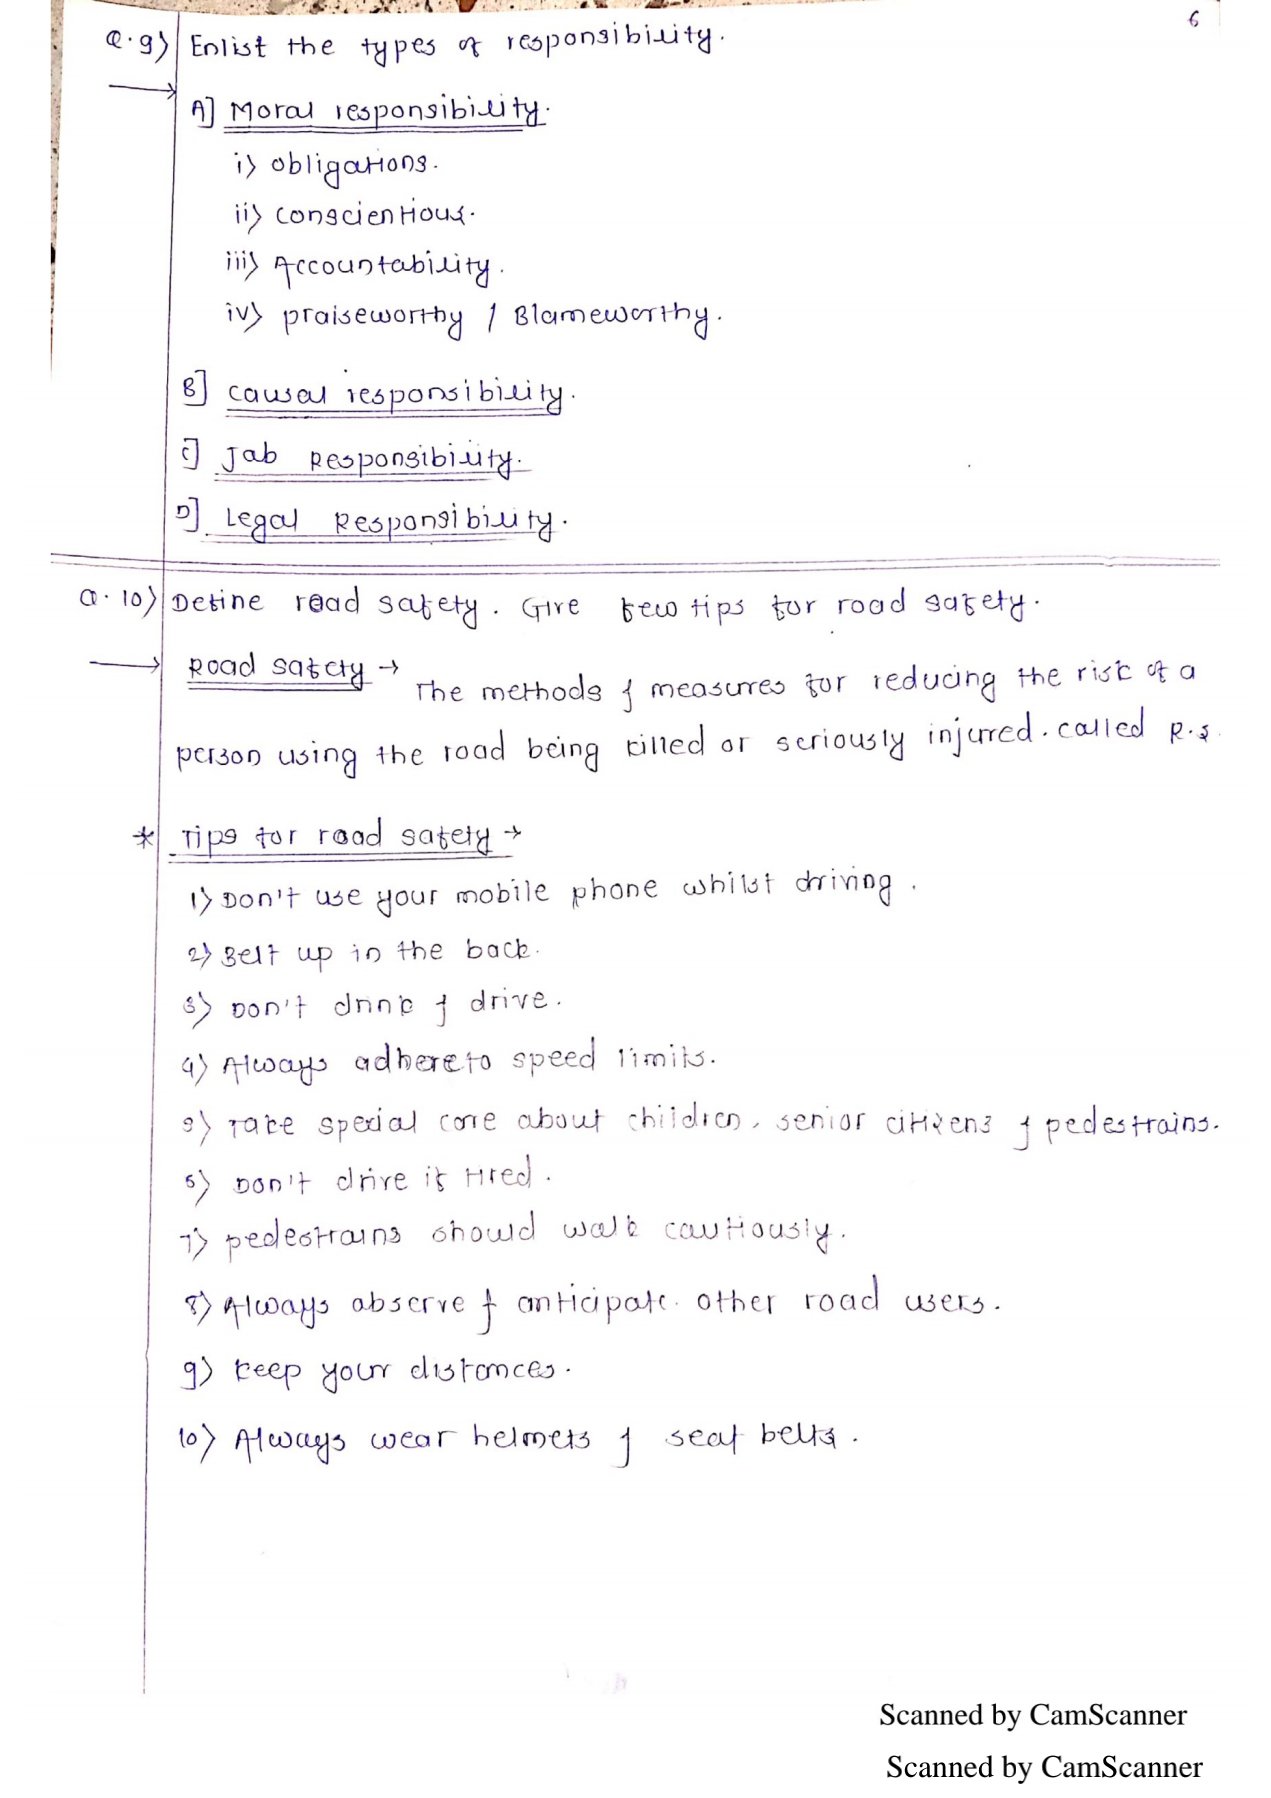 6
Q.9) Enlist the types of responsibility.
A] Moral responsibility.
i) obligations.
ii) conscientious.
iii) Accountability.
iv) praiseworthy / Blameworthy.
B] causal responsibility.
C] Job Responsibility.
D] Legal Responsibility.
Q.10) Define road safety. Give few tips for road safety.
Road safety → The methods & measures for reducing the risk of a
person using the road being killed or seriously injured. called R.S.
* Tips for road safety →
1) Don't use your mobile phone whilst driving.
2) Belt up in the back.
3) Don't drink & drive.
4) Always adhere to speed limits.
5) Take special care about children, senior citizens & pedestrains.
6) Don't drive if tired.
7) pedestrains should walk cautiously.
8) Always observe & anticipate other road users.
9) keep your distances.
10) Always wear helmets & seat belts.
Scanned by CamScanner
Scanned by CamScanner